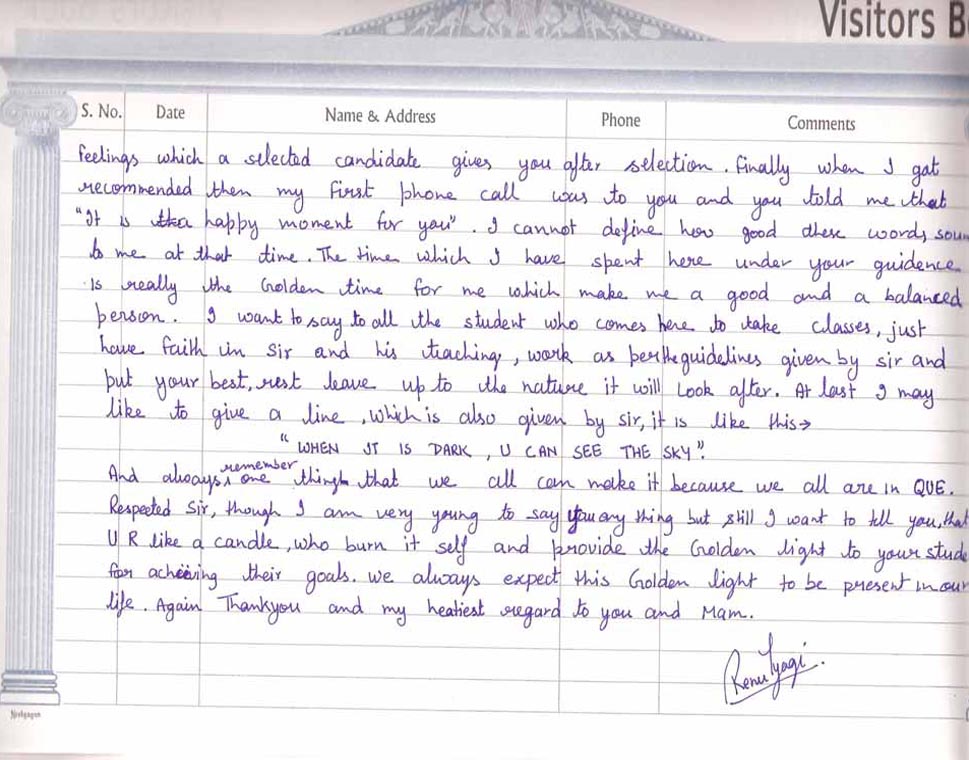 Visitors B
S. No. Date Name & Address Phone Comments
feelings which a selected candidate gives you after selection. Finally when I got
recommended then my first phone call was to you and you told me that
"It is the happy moment for you". I cannot define how good these words soun
to me at that time. The time which I have spent here under your guidence
is really the Golden time for me which make me a good and a balanced
person. I want to say to all the student who comes here to take classes, just
have faith in sir and his teaching, work as per the guidelines given by sir and
put your best, rest leave up to the nature it will look after. At last I may
like to give a line, which is also given by sir, it is like this→
"WHEN IT IS DARK, U CAN SEE THE SKY".
And always remember one thing that we all can make it because we all are in QUE.
Respected Sir, though I am very young to say you any thing but still I want to tell you, that
U R like a candle, who burn it self and provide the Golden light to your stude
for acheiving their goals. We always expect this Golden light to be present in our
life. Again Thankyou and my heatiest regard to you and Mam.
Renu Tyagi.
Neelgagan